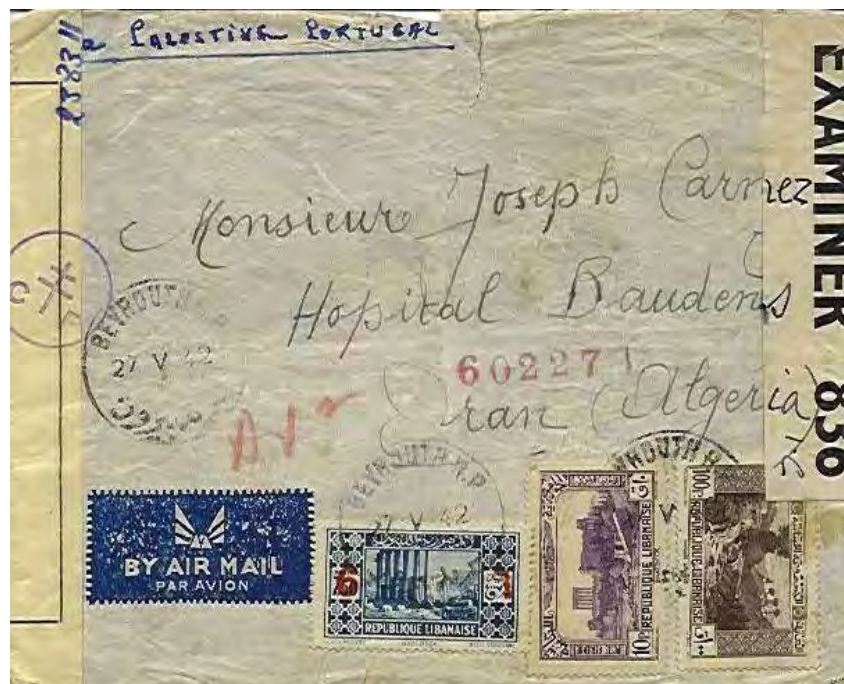 Palestine Portugal
EXAMINER 836
Monsieur Joseph Carmez
Hopital Baudens
Oran (Algeria)
602271
BEYROUTH R.P.
27 V 42
بيروت
BEYROUTH R.P.
27 V 42
BY AIR MAIL
PAR AVION
6
REPUBLIQUE LIBANAISE
10P
REPUBLIQUE LIBANAISE
100P
REPUBLIQUE LIBANAISE